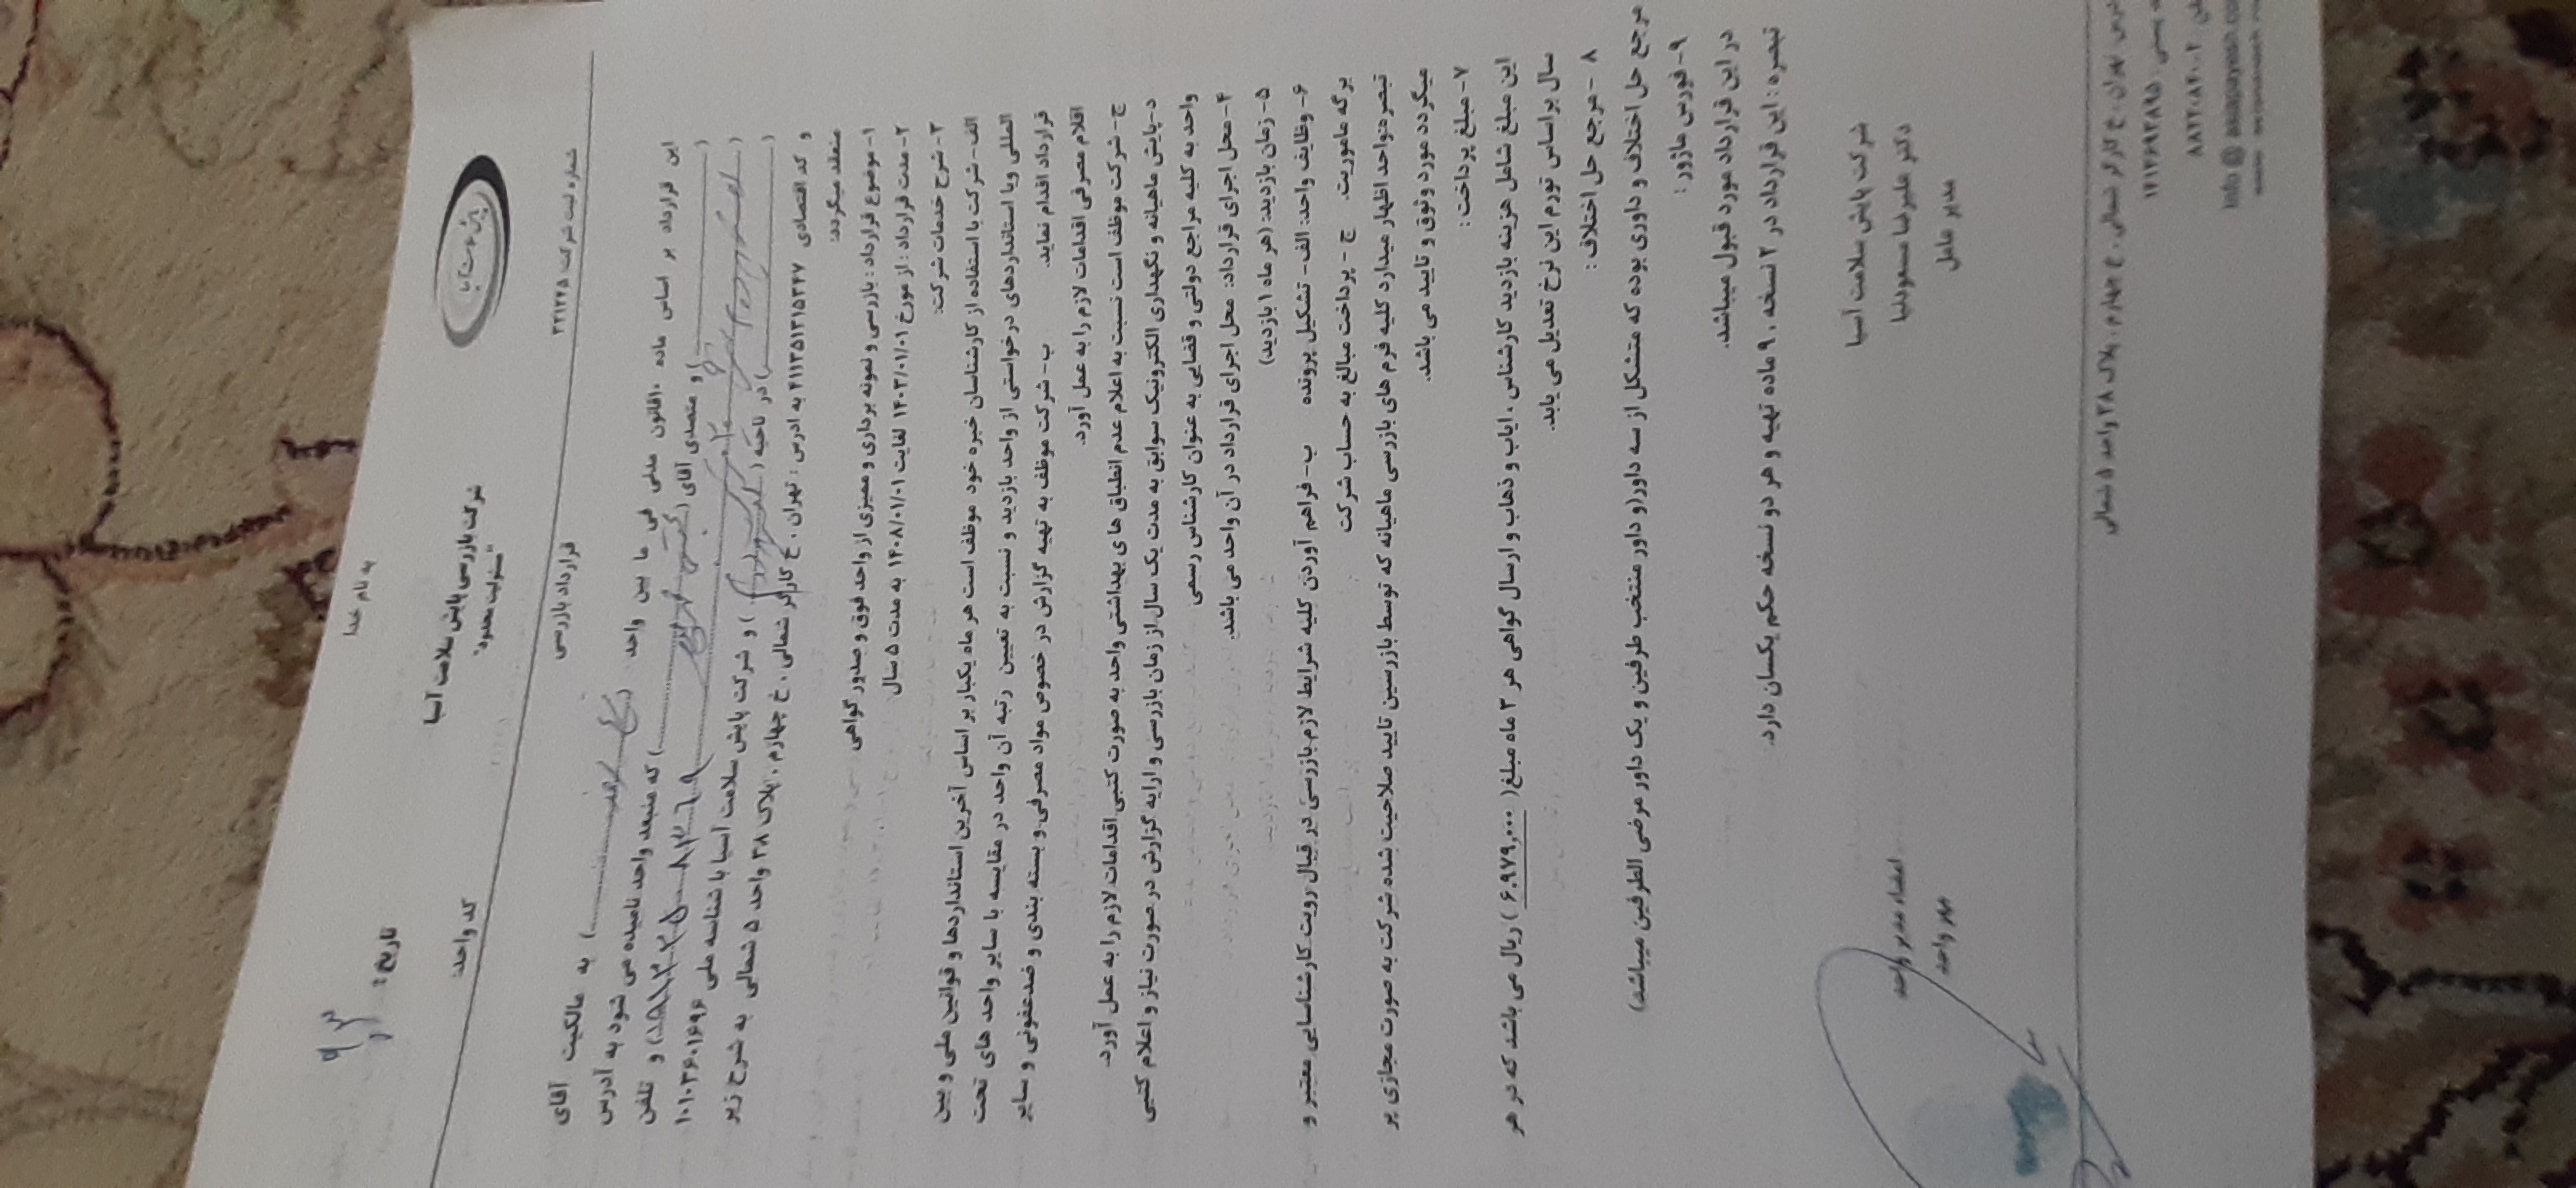 به نام خدا
تاریخ :
شرکت بازرسی پایش سلامت آسیا
"مسئولیت محدود"
کد واحد:
شماره ثبت شرکت ۳۲۱۲۲۵
قرارداد بازرسی
این قرارداد بر اساس ماده ۱۰قانون مدنی فی ما بین واحد ( ) به مالکیت آقای
( ) و متصدی آقای ( ) که منبعد واحد نامیده می شود به آدرس
( ) و تلفن
( ) در ناحیه ( ) و شرکت پایش سلامت آسیا با شناسه ملی ۱۰۱۰۳۶۰۱۶۹۶
و کد اقتصادی ۴۱۱۳۵۱۳۱۵۳۴۷ به ادرس : تهران ، خ کارگر شمالی ، خ چهارم ، پلاک ۳۸ واحد ۵ شمالی به شرح زیر
منعقد میگردد:
۱- موضوع قرارداد : بازرسی و نمونه برداری و ممیزی از واحد فوق و صدور گواهی
۲- مدت قرارداد : از مورخ ۱۴۰۳/۰۱/۰۱ لغایت ۱۴۰۸/۰۱/۰۱ به مدت ۵ سال
۳- شرح خدمات شرکت:
الف- شرکت با استفاده از کارشناسان خبره خود موظف است هر ماه یکبار بر اساس آخرین استانداردها و قوانین ملی و بین
المللی ویا استانداردهای درخواستی از واحد بازدید و نسبت به تعیین رتبه آن واحد در مقایسه با سایر واحد های تحت
قرارداد اقدام نماید. ب- شرکت موظف به تهیه گزارش در خصوص مواد مصرفی و بسته بندی و ضدعفونی و سایر
اقلام مصرفی اقدامات لازم را به عمل آورد.
ج- شرکت موظف است نسبت به اعلام عدم انطباق های بهداشتی واحد به صورت کتبی اقدامات لازم را به عمل آورد.
د- پایش ماهیانه و نگهداری الکترونیک سوابق به مدت یک سال از زمان بازرسی و ارایه گزارش در صورت نیاز و اعلام کتبی
واحد به کلیه مراجع دولتی و قضایی به عنوان کارشناس رسمی
۴- محل اجرای قرارداد: محل اجرای قرارداد در آن واحد می باشد.
۵- زمان بازدید: (هر ماه ۱ بازدید)
۶- وظایف واحد: الف- تشکیل پرونده ب- فراهم آوردن کلیه شرایط لازم بازرسی در قبال رویت کارشناسایی معتبر و
برگه ماموریت. ج - پرداخت مبالغ به حساب شرکت
تبصره:واحد اظهار میدارد کلیه فرم های بازرسی ماهیانه که توسط بازرسین تایید صلاحیت شده شرکت به صورت مجازی پر
میگردد مورد وثوق و تایید می باشد.
۷- مبلغ پرداخت :
این مبلغ شامل هزینه بازدید کارشناس ، ایاب و ذهاب و ارسال گواهی هر ۳ ماه مبلغ( ۶.۹۷۹.۰۰۰ ) ریال می باشد که در هر
سال براساس تورم این نرخ تعدیل می یابد.
۸ - مرجع حل اختلاف :
مرجع حل اختلاف و داوری بوده که متشکل از سه داور(و داور منتخب طرفین و یک داور مرضی الطرفین میباشد)
۹- فورس ماژور :
در این قرارداد مورد قبول میباشد.
تبصره : این قرارداد در ۲ نسخه ، ۹ ماده تهیه و هر دو نسخه حکم یکسان دارد.
شرکت پایش سلامت آسیا
دکتر علیرضا مسعودنیا
مدیر عامل
امضاء مدیر واحد
مهر واحد
تهران ، خ کارگر شمالی ، خ چهارم ، پلاک ۳۸ واحد ۵ شمالی